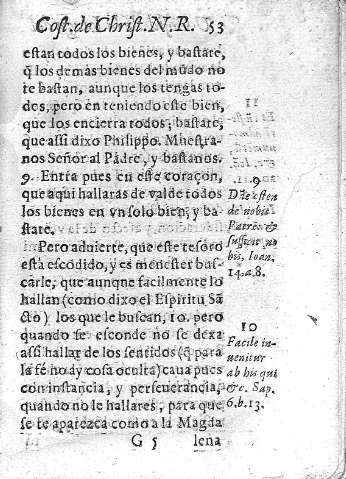 Cost. de Christ. N. R. 53
estan todos los bienes, y bastate,
q̃ los demàs bienes del mũdo no
te bastan, aunque los tengas to-
dos, pero en teniendo este bien,
que los encierra todos, bastate,
que assi dixo Philippo. Muestra-
nos Señor al Padre, y bastanos.
9. Entra pues en este coraçon,
que aqui hallaràs de valde todos
los bienes en vn solo bien, y ba-
state.
Pero aduierte, que este tesoro
està escõdido, y es menester bus-
carle, que aunque facilmente lo
hallan (como dixo el Espiritu Sã
cto) los que le buscan, 10. pero
quando se esconde no se dexa
assi hallar de los sentidos (q̃ para
la fè no ay cosa oculta) caua pues
con instancia, y perseuerancia,
quando no le hallares, para que
se te aparezca como a la Magda
G 5 lena
9
de nobis
Patrẽ, &
sufficit no
bis, Ioan.
14. a. 8.
10
Facile in-
uenitur
ab his qui
&c. Sap.
6. b. 13.